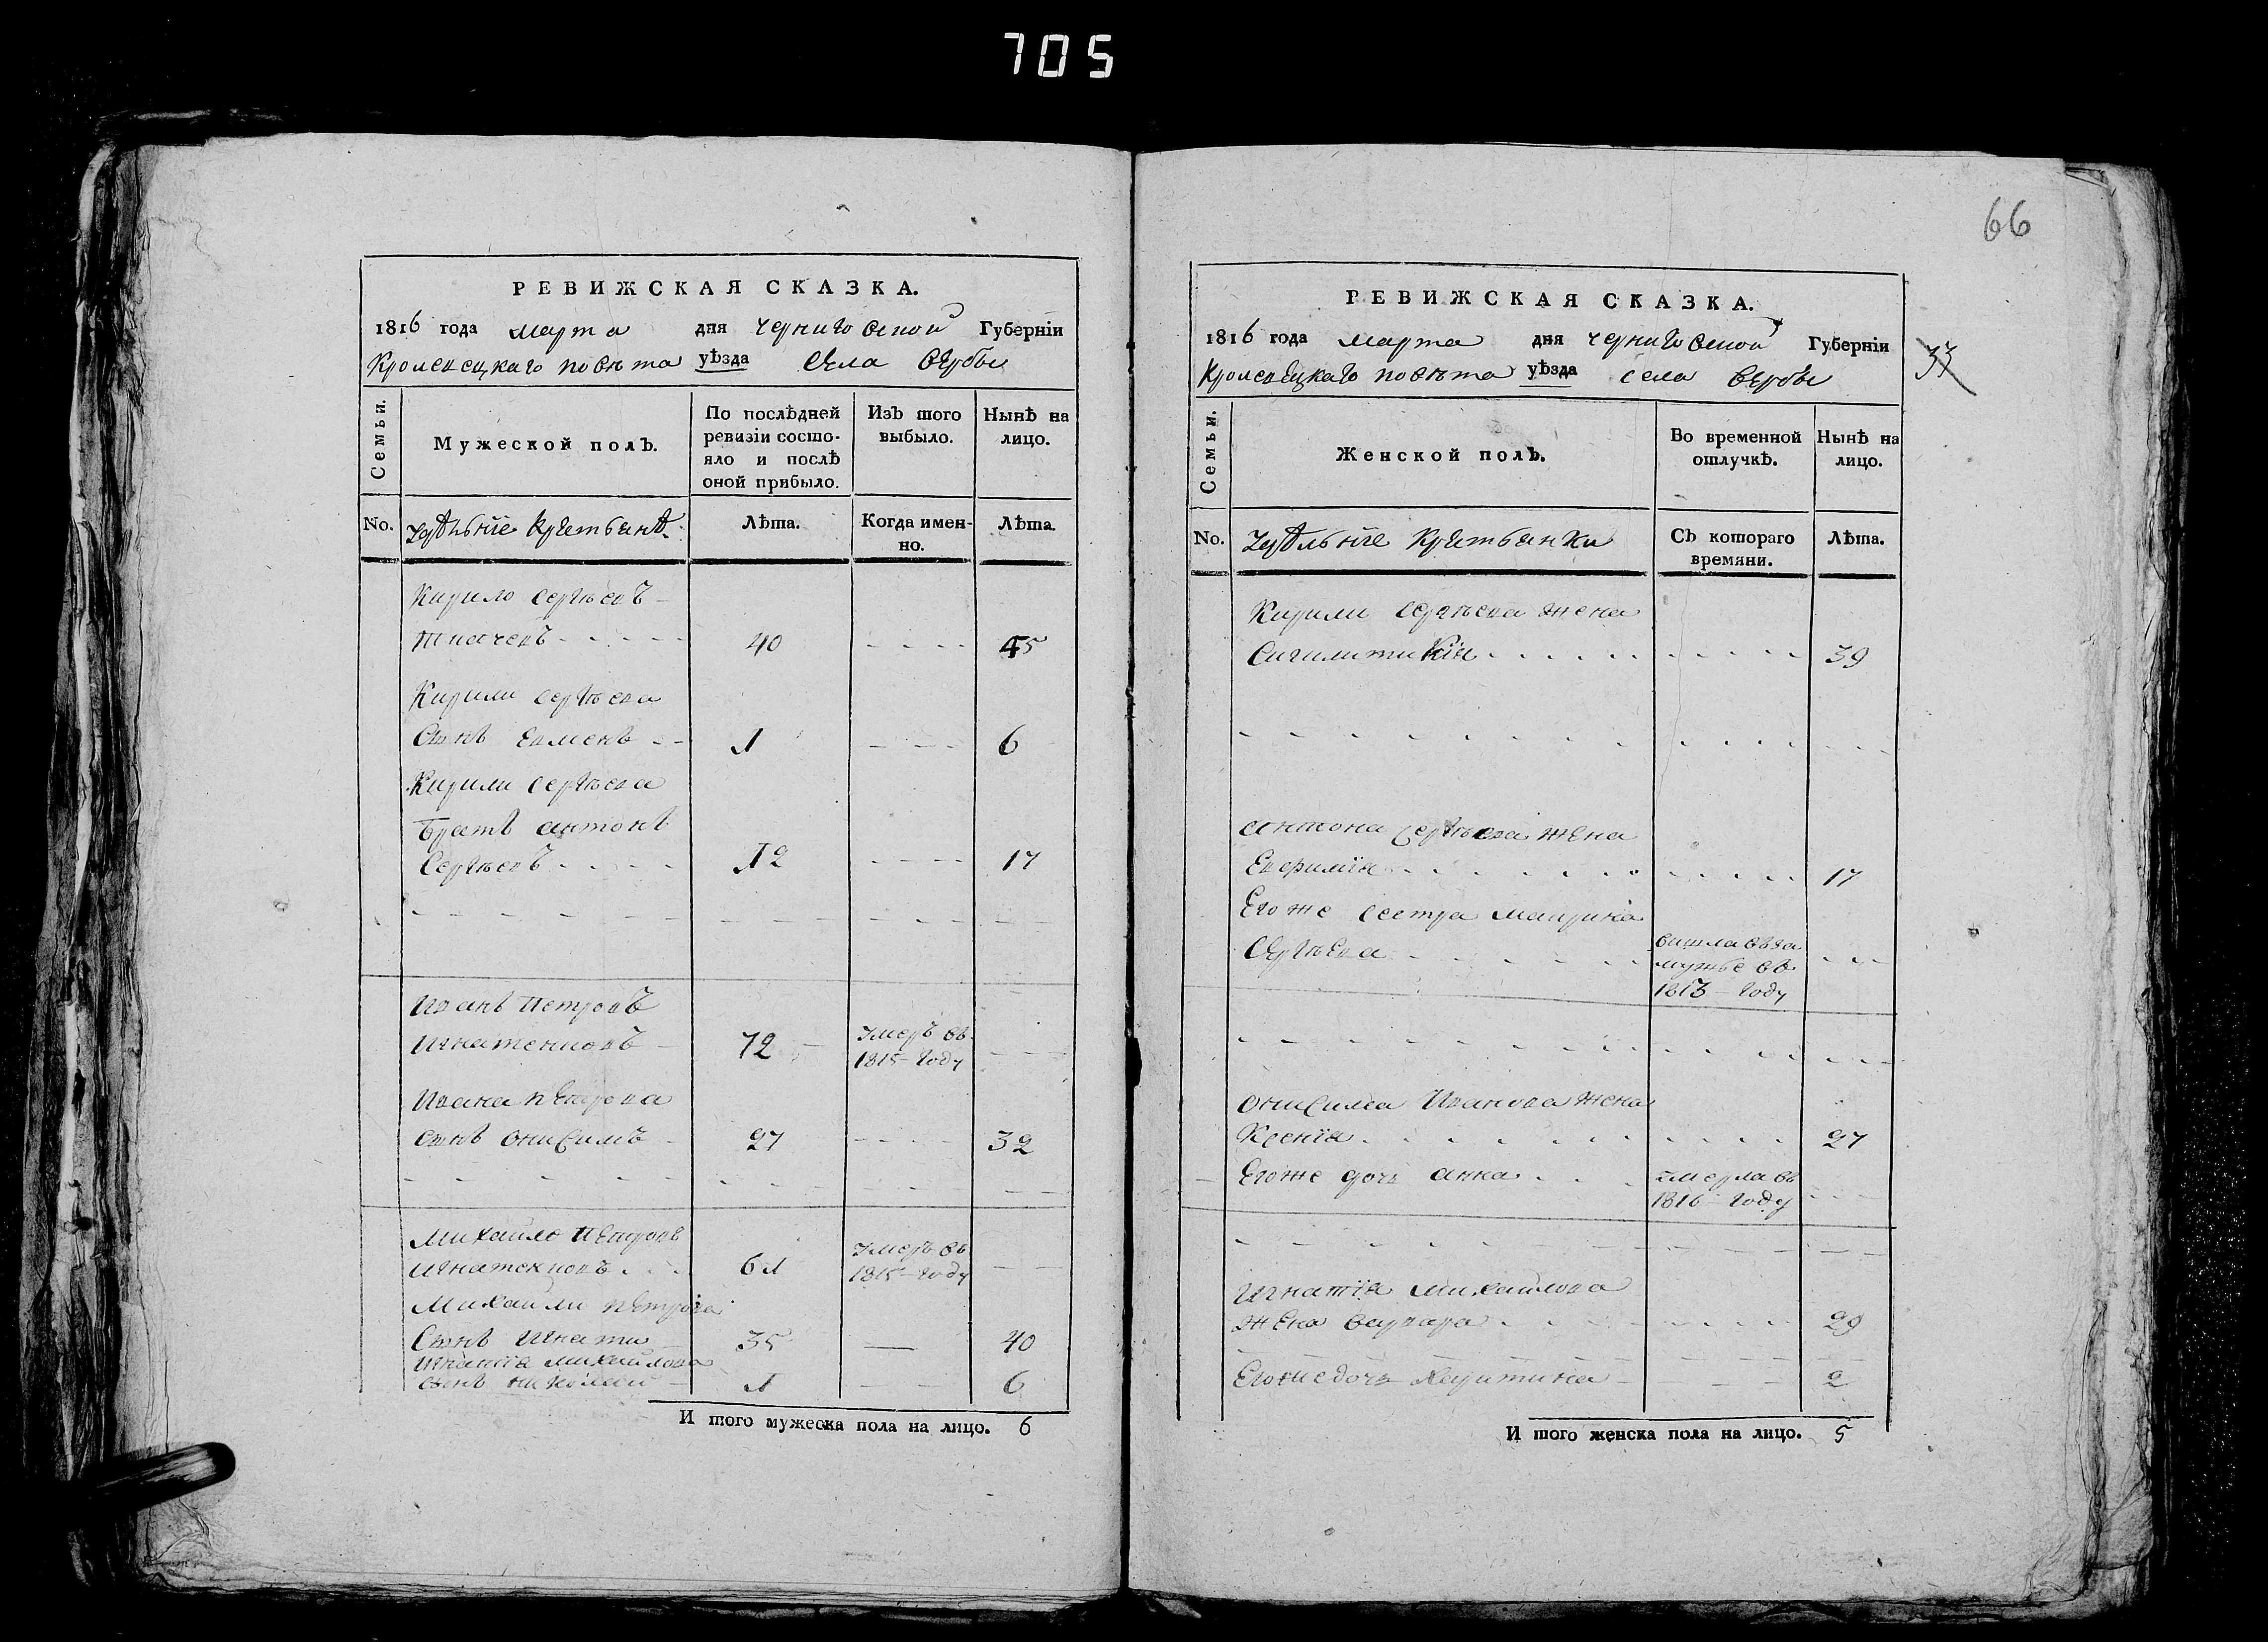 705
РЕВИЖСКАЯ СКАЗКА.
1816 года марта дня Черниговской Губерніи
Кролевецкаго повѣта уѣзда села Вербы
Семьи.
Мужеской полъ.
По послѣдней ревизіи состо-
яло и послѣ
оной прибыло.
Изъ того
выбыло.
Нынѣ на
лицо.
No.
Удѣльніе крестьянѣ
Лѣта.
Когда имен-
но.
Лѣта.
Кирило Сергѣевъ
Ткачевъ 40 45
Кирили Сергѣева
Сынъ Евменъ 1 6
Кирили Сергѣева
Братъ Антонъ
Сергѣевъ 12 17
Иванъ Петровъ
Игнатенковъ 72 Умеръ въ
1815 году
Ивана Петрова
сынъ Онисимъ 27 32
Михайло Петровъ
Игнатенковъ 61 Умеръ въ
1815 году
Михайли Петрова
Сынъ Игнати 35 40
Игнатія Михайлова
сынъ Николай 1 6
И того мужеска пола на лицо. 6
66
РЕВИЖСКАЯ СКАЗКА.
1816 года марта дня Черниговской Губерніи
Кролевецкаго повѣта уѣзда села Вербы
33
Семьи.
Женской полъ.
Во временной
отлучкѣ.
Нынѣ на
лицо.
No.
Удѣльніе крестьянки
Съ котораго
времяни.
Лѣта.
Кирили Сергѣева жена
39
Антона Сергѣева жена
Евфимія 17
Егоже сестра Маврика
Сергѣева вишла въ за
мужье въ
1813 году
Онисима Иванова жена
Ксенія 27
Егоже дочь Анна умерла въ
1816 году
Игнатія Михайлова
жена Варвара 29
Егоже дочь Харитина 2
И того женска пола на лицо. 5